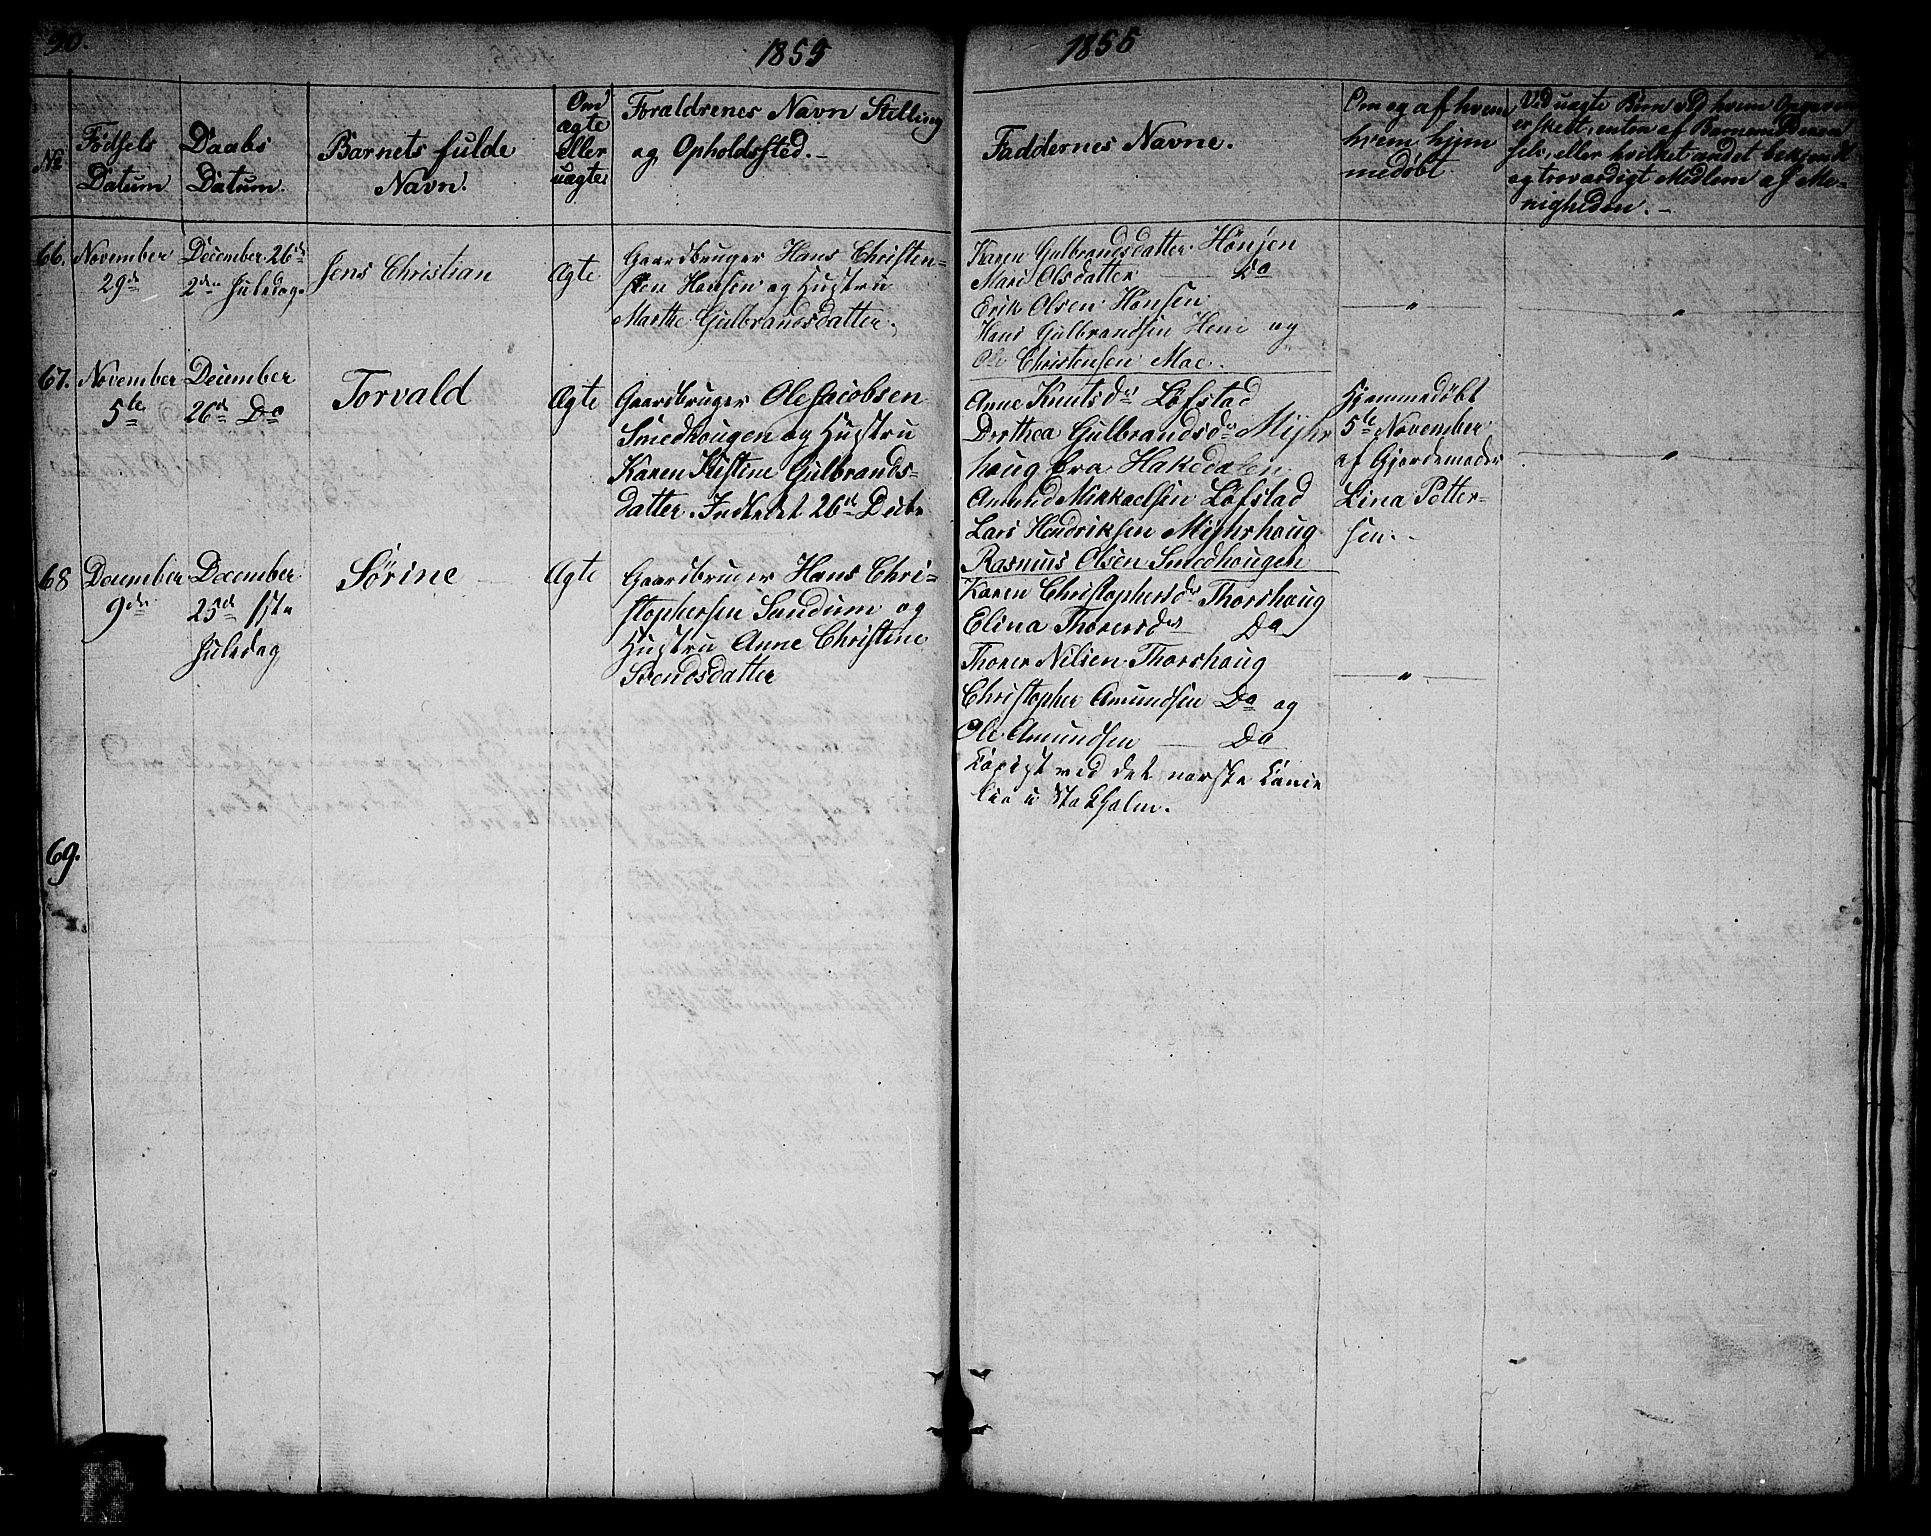 30.
1855
1855
No
Fødsels
Datum
Daabs
Datum.
Barnets fulde
Navn.
Om
ægte
eller
uægte
Forældrenes Navn Stilling
og Opholdssted.
Faddernes Navne.
Om og af hvem
hvem hjem
medøbt
Ved uægte Børn ved hvem Opgaven
er skeet, enten af Barnem
fels, eller hvilket andet bekjendt
og troværdigt Medlem af Me-
nigheden.
66.
November
29de
December 26de
2den Juledag.
Jens Christian
Ægte
Gaardbruger Hans Christen-
sen Hønsen og Hustru
Marthe Gulbrandsdatter.
Karen Gulbrandsdatter Hønsen
Mari Olsdatter Do
Erik Olsen Hønsen
Hans Gulbrandsen og
Ole Christensen Moe.
67.
November
5te
December
26de Do
Torvald
Ægte
Gaardbruger Ole Jacobsen
Smedhougen og Hustru
Karen Kistine Gulbrands-
datter. 26de Decbr
Anne Knutsdr Løfstad
Dorthea Gulbrandsdr Myhr
houg fra Hakedalen
Amund Mikkaelsen Løfstad
Lars Hendriksen Myhrhoug
Rasmus Olsen Smedhougen
Hjemmedøbt
5te November
af Gjordemoder
Lina Petter-
sen.
68
December
9de
December
25de 1ste
Juledag
Sørine
Ægte
Gaardbruger Hans Chri-
stophersen Sundum og
Hustru Anne Christine
Svendsdatter
Karen Christophersdr Thorshoug
Elina Thorersdr Do
Thorer Nilsen Thorshoug
Christopher Amundsen Do og
Ole Amundsen Do
Copist ved det norske Cance
lie i Stockholm.
69.